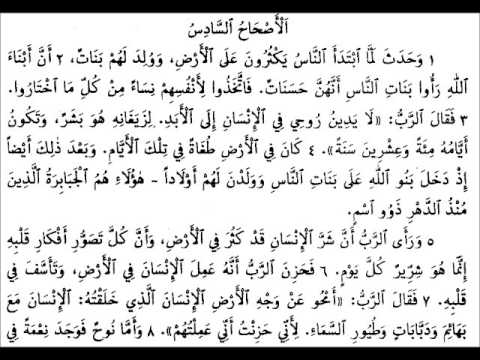 اَلْأَصْحَاحُ ٱلسَّادِسُ
١ وَحَدَثَ لَمَّا ٱبْتَدَأَ ٱلنَّاسُ يَكْثُرُونَ عَلَى ٱلْأَرْضِ، وَوُلِدَ لَهُمْ بَنَاتٌ، ٢ أَنَّ أَبْنَاءَ
ٱللهِ رَأَوْا بَنَاتِ ٱلنَّاسِ أَنَّهُنَّ حَسَنَاتٌ. فَٱتَّخَذُوا لِأَنْفُسِهِمْ نِسَاءً مِنْ كُلِّ مَا ٱخْتَارُوا.
٣ فَقَالَ ٱلرَّبُّ: «لَا يَدِينُ رُوحِي فِي ٱلْإِنْسَانِ إِلَى ٱلْأَبَدِ. لِزَيَغَانِهِ هُوَ بَشَرٌ، وَتَكُونُ
أَيَّامُهُ مِئَةً وَعِشْرِينَ سَنَةً». ٤ كَانَ فِي ٱلْأَرْضِ طُغَاةٌ فِي تِلْكَ ٱلْأَيَّامِ. وَبَعْدَ ذٰلِكَ أَيْضاً
إِذْ دَخَلَ بَنُو ٱللهِ عَلَى بَنَاتِ ٱلنَّاسِ وَوَلَدْنَ لَهُمْ أَوْلَاداً - هٰؤُلَاءِ هُمُ ٱلْجَبَابِرَةُ ٱلَّذِينَ
مُنْذُ ٱلدَّهْرِ ذَوُو ٱسْمٍ.
٥ وَرَأَى ٱلرَّبُّ أَنَّ شَرَّ ٱلْإِنْسَانِ قَدْ كَثُرَ فِي ٱلْأَرْضِ، وَأَنَّ كُلَّ تَصَوُّرِ أَفْكَارِ قَلْبِهِ
إِنَّمَا هُوَ شِرِّيرٌ كُلَّ يَوْمٍ. ٦ فَحَزِنَ ٱلرَّبُّ أَنَّهُ عَمِلَ ٱلْإِنْسَانَ فِي ٱلْأَرْضِ، وَتَأَسَّفَ فِي
قَلْبِهِ. ٧ فَقَالَ ٱلرَّبُّ: «أَمْحُو عَنْ وَجْهِ ٱلْأَرْضِ ٱلْإِنْسَانَ ٱلَّذِي خَلَقْتُهُ: ٱلْإِنْسَانَ مَعَ
بَهَائِمَ وَدَبَّابَاتٍ وَطُيُورِ ٱلسَّمَاءِ. لِأَنِّي حَزِنْتُ أَنِّي عَمِلْتُهُمْ». ٨ وَأَمَّا نُوحٌ فَوَجَدَ نِعْمَةً فِي